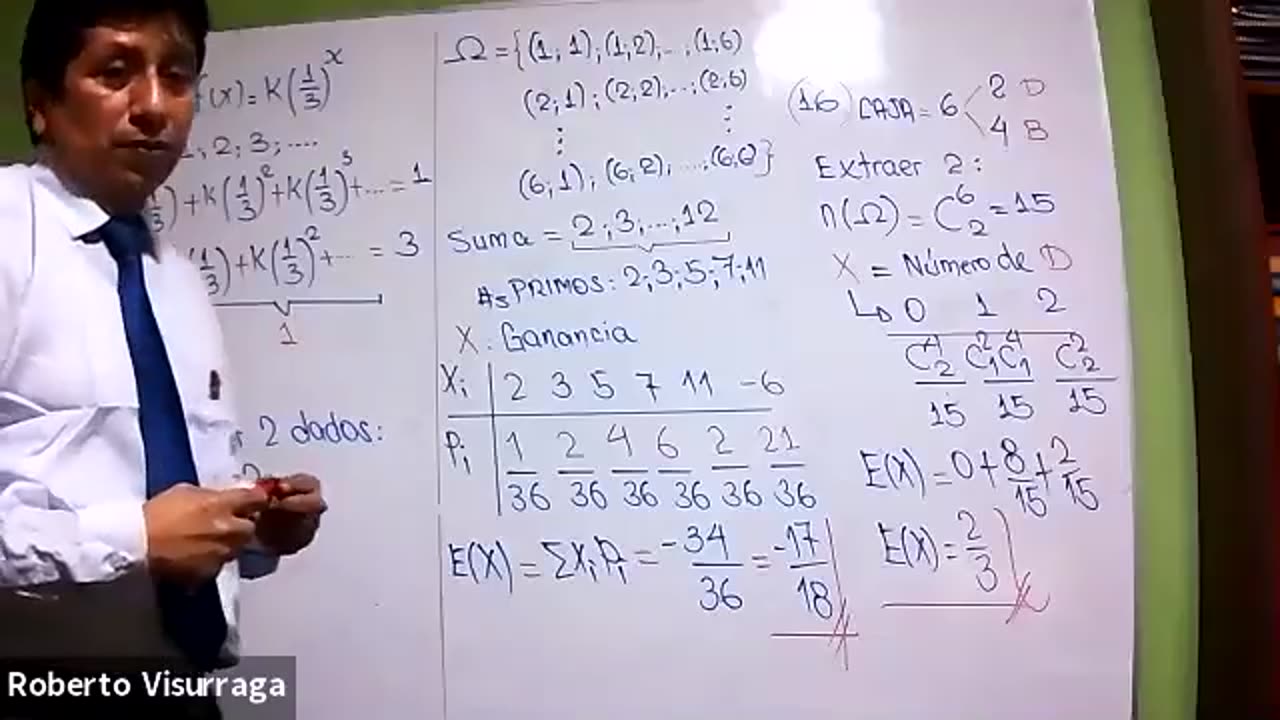 f(x) = K(1/3)^x
1; 2; 3; ....
(1/3) + K(1/3)^2 + K(1/3)^3 + ... = 1
(1/3) + K(1/3)^2 + ... = 3
1
2 dados:
Ω = {(1; 1); (1; 2); ... ; (1; 6)
(2; 1) ; (2; 2); ... ; (2; 6)
⋮ ⋮
(6; 1) ; (6; 2) ; ... ; (6; 6)}
Suma = 2; 3; ...; 12
#s PRIMOS: 2; 3; 5; 7; 11
X : Ganancia
Xi | 2 3 5 7 11 -6
Pi | 1/36 2/36 4/36 6/36 2/36 21/36
E(X) = ΣXiPi = -34/36 = -17/18
(16) CAJA = 6 < 2 D
4 B
Extraer 2 :
n(Ω) = C_2^6 = 15
X = Número de D
↳ 0 1 2
C_2^4/15 C_1^2 C_1^4/15 C_2^2/15
E(X) = 0 + 8/15 + 2/15
E(X) = 2/3
Roberto Visurraga